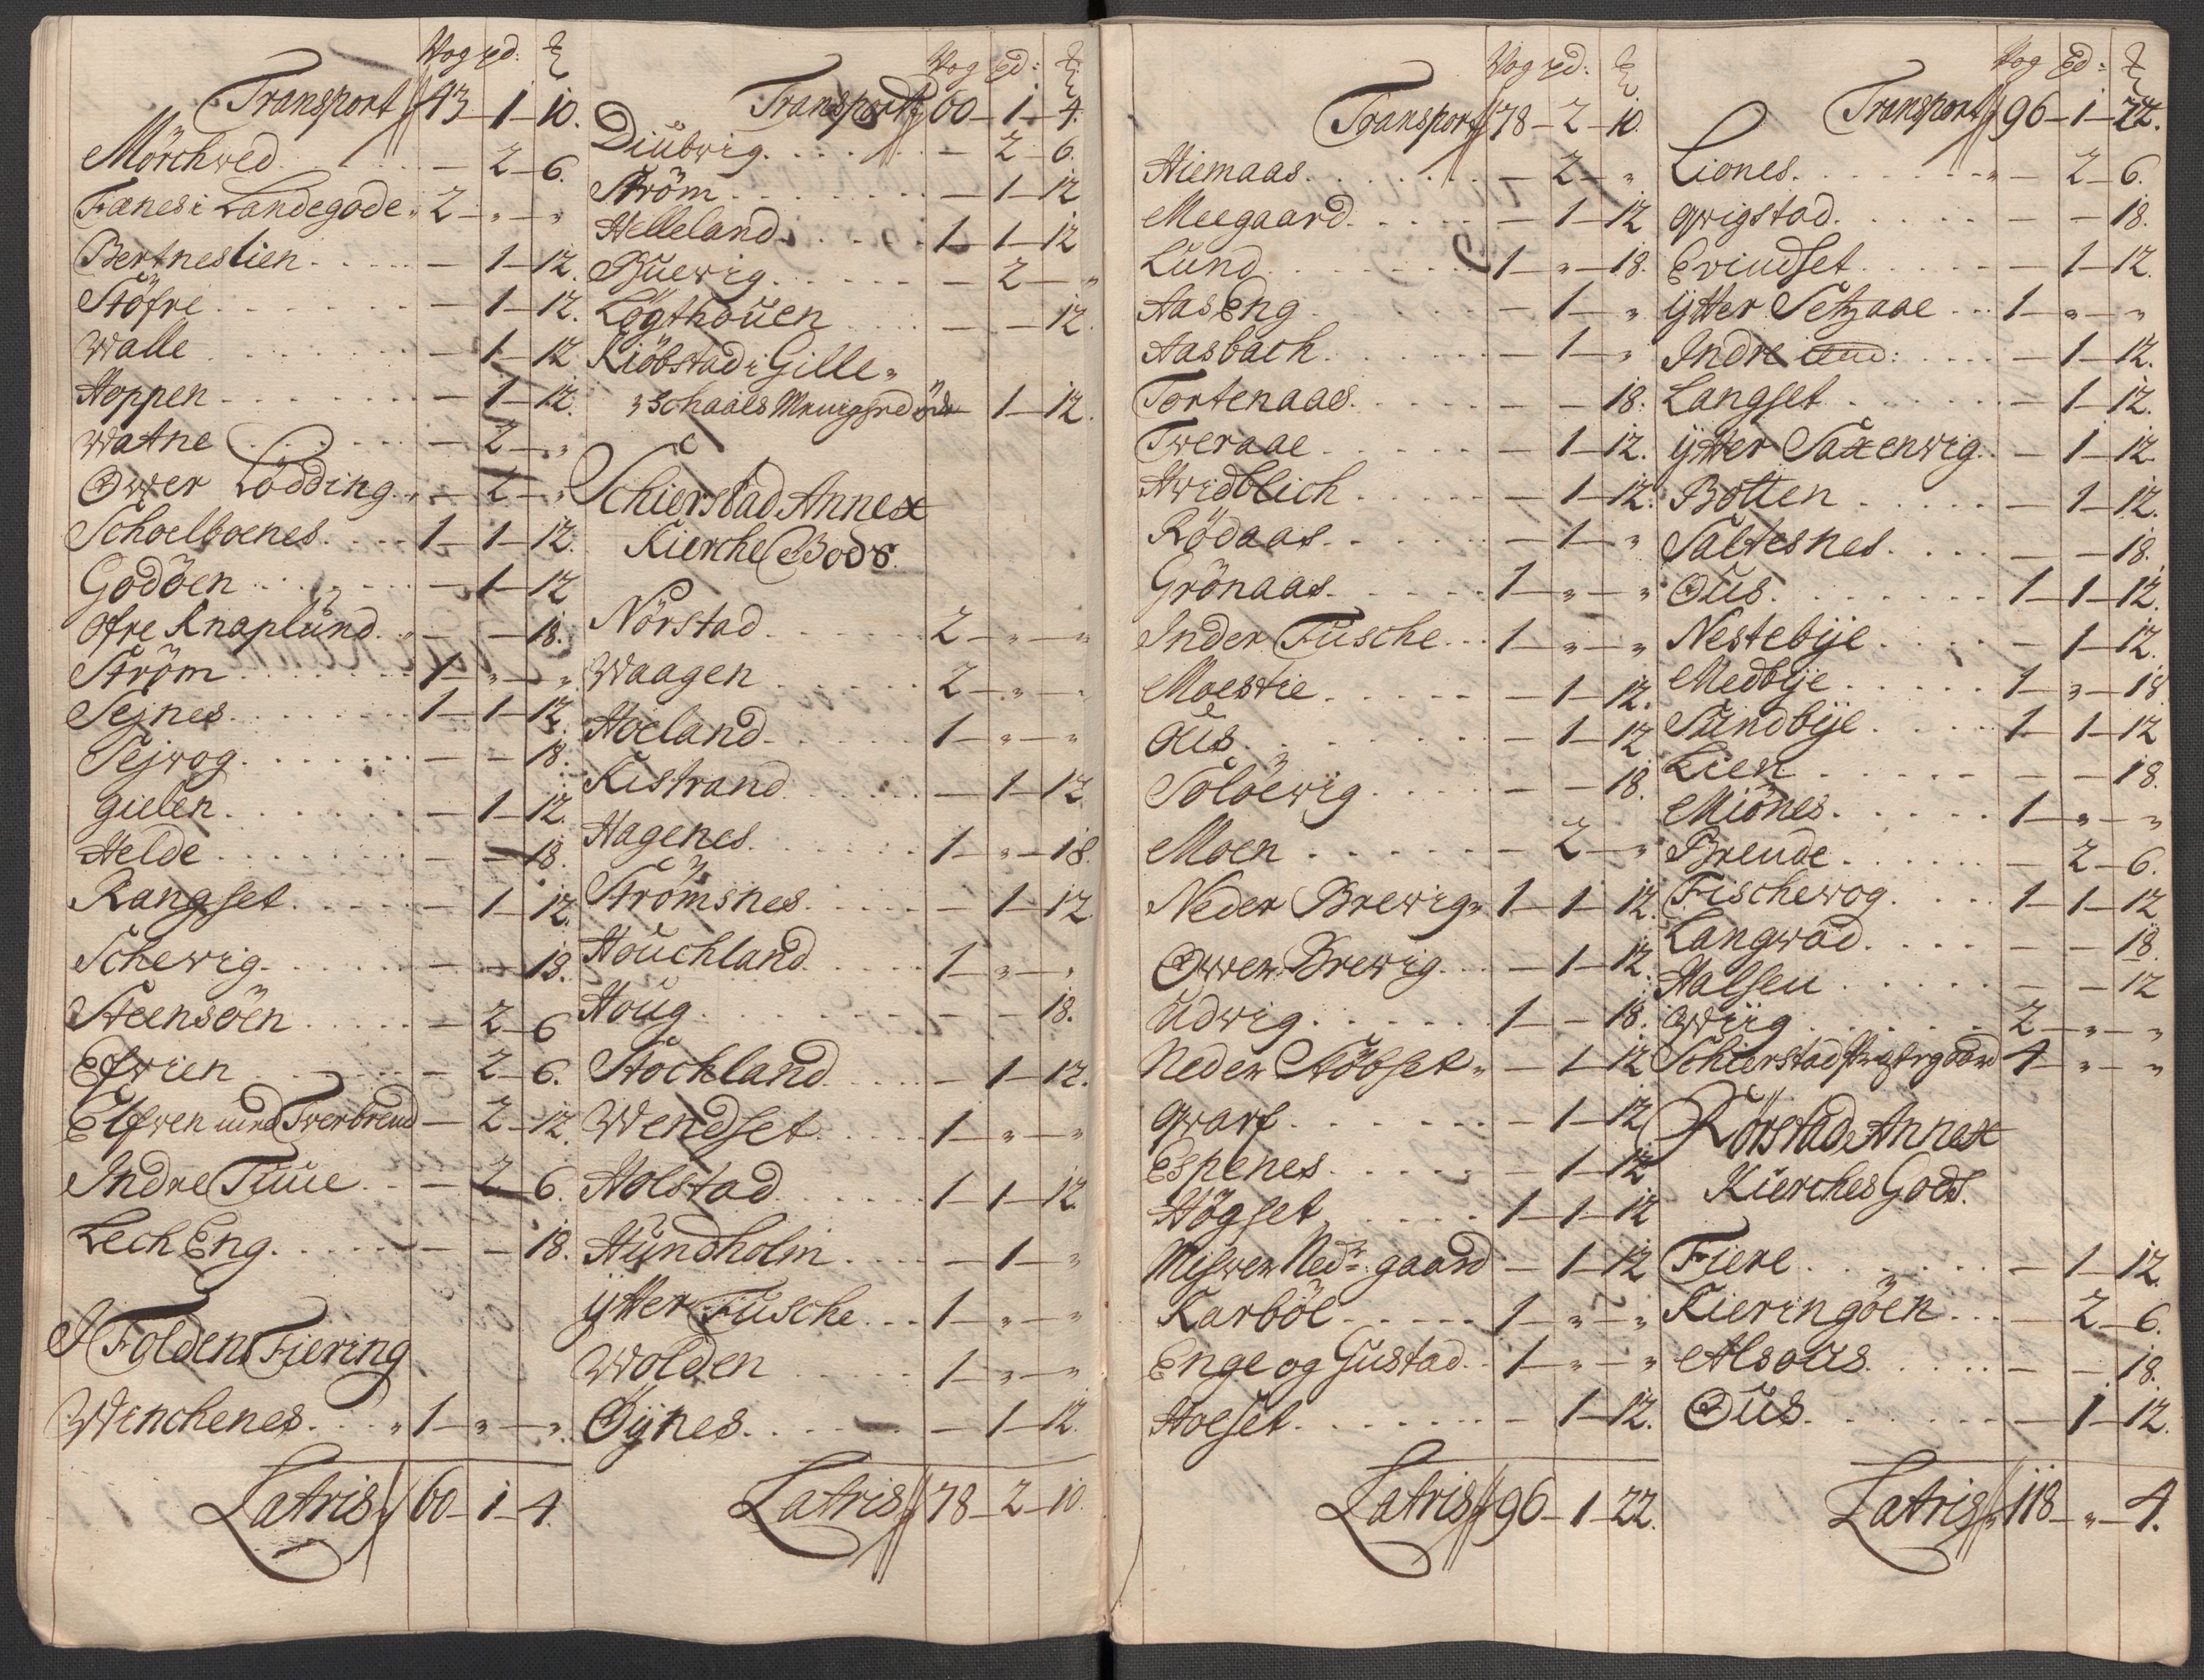 Wog pd: ℔
Transport 43 – 1 – 10.
Mörchwed – 2 – 6.
Fænes i Landegode 2 – „ – „
Bertneslien – 1 – 12.
Stöfre – 1 – 12.
Walle – 1 – 12
Hoppen – 1 – 12.
Watne – 2 – „
Øwer Lödding – 2 – „
Schoelboenes 1 – 1 – 12.
Godöen – 1 – 12
Ofre Knaplund – – 18.
Ström 1 – „ – „
Sejnes 1 – 1 – 12.
Sejwog – – 18.
Gielen – 1 – 12.
Helde – – 18.
Rangset – 1 – 12.
Schewig – – 18.
Steensöen – 2 – 6
Efwien – 2 – 6.
Elfwen und Twerbrend – 2 – 12.
Indre Tuue – 2 – 6.
Lech Eng – – 18.
I Foldens Fiering
Winchenes 1 – „ – „
Latris 60 – 1 – 4.
Wog pd: ℔
Transport 60 – 1 – 4.
Diubwig – 2 – 6.
Ström – 1 – 12
Helleland 1 – 1 – 12
Buewig – 2 – „
Lögthouen – – 12.
Kiöbstad i Gille„
„Schaals 1 – 12.
Schierstad Annex
Kierche Gods.
Nörstad 2 – „ – „
Waagen 2 – „ – „
Hoeland 1 – „ – „
Kistrand – 1 – 12.
Hagenes 1 – „ – 18.
Strömsnes – 1 – 12.
Houchland 1 – „ – „
Houg – – 18.
Stochland – 1 – 12.
Wendset 1 – „ – „
Holstad 1 – 1 – 12.
Hundholm – 1 – „
ÿtter Fusche 1 – „ – „
Wolden 1 – „ – „
Öÿnes – 1 – 12.
Latris 78 – 2 – 10.
Wog pd: ℔
Transport 78 – 2 – 10.
Hiemaas – 2 – „
Meegaard – 1 – 12
Lund 1 – „ – 18.
Aas Eng – 1 – „
Aasbach – 1 – „
Tortenaas – – 18.
Tweraae – 1 – 12.
Hwidblich – 1 – 12.
Rödaas – 1 – „
Grönaas 1 – „ – „
Inder Fusche 1 – „ – „
Moestie – 1 – 12.
Ous – 1 – 12
Solöewig – – 18.
Moen – 2 – „
Neder Brewig 1 – 1 – 12.
Øwer Brewig – 1 – 12.
Udwig 1 – – 18.
Neder Stöbset – 1 – 12
Qwarf – 1 – 12
Espenes – 1 – 12
Högset 1 – 1 – 12
Miswer Nedr: gaard – 1 – 12
Karböl 1 – „ – „
Enge og Gustad 1 – „ – „
Hoeset – 1 – 12.
Latris 96 – 1 – 22.
Wog pd: ℔
Transport 96 – 1 – 22.
Liones – 2 – 6.
Qwigstad – – 18.
Evindset – 1 – 12.
ÿtter Setzaae 1 – „ – „
Indre – 1 – 12.
Langset – 1 – 12.
ÿtter Saxenwig – 1 – 12.
Botten – 1 – 12.
Saltesnes – – 18.
Ous 1 – 1 – 12.
Nestebÿe – 1 – 12.
Medbÿe 1 – „ – 18
Sundbÿe 1 – 1 – 12
Lien – – 18.
Miönes 1 – „ – „
Breude – 2 – 6.
Fischewog 1 – 1 – 12
Langwad – – 18.
Halsen – – 12
Wÿg 2 – „ – „
Schierstad Prestegaard 4 – „ – „
Rörstad Annex
Kierches Gods.
Fiere – 1 – 12.
Kieringöen – 2 – 6.
Alsous – – 18.
Ous – 1 – 12.
Latris 118 – „ – 4.